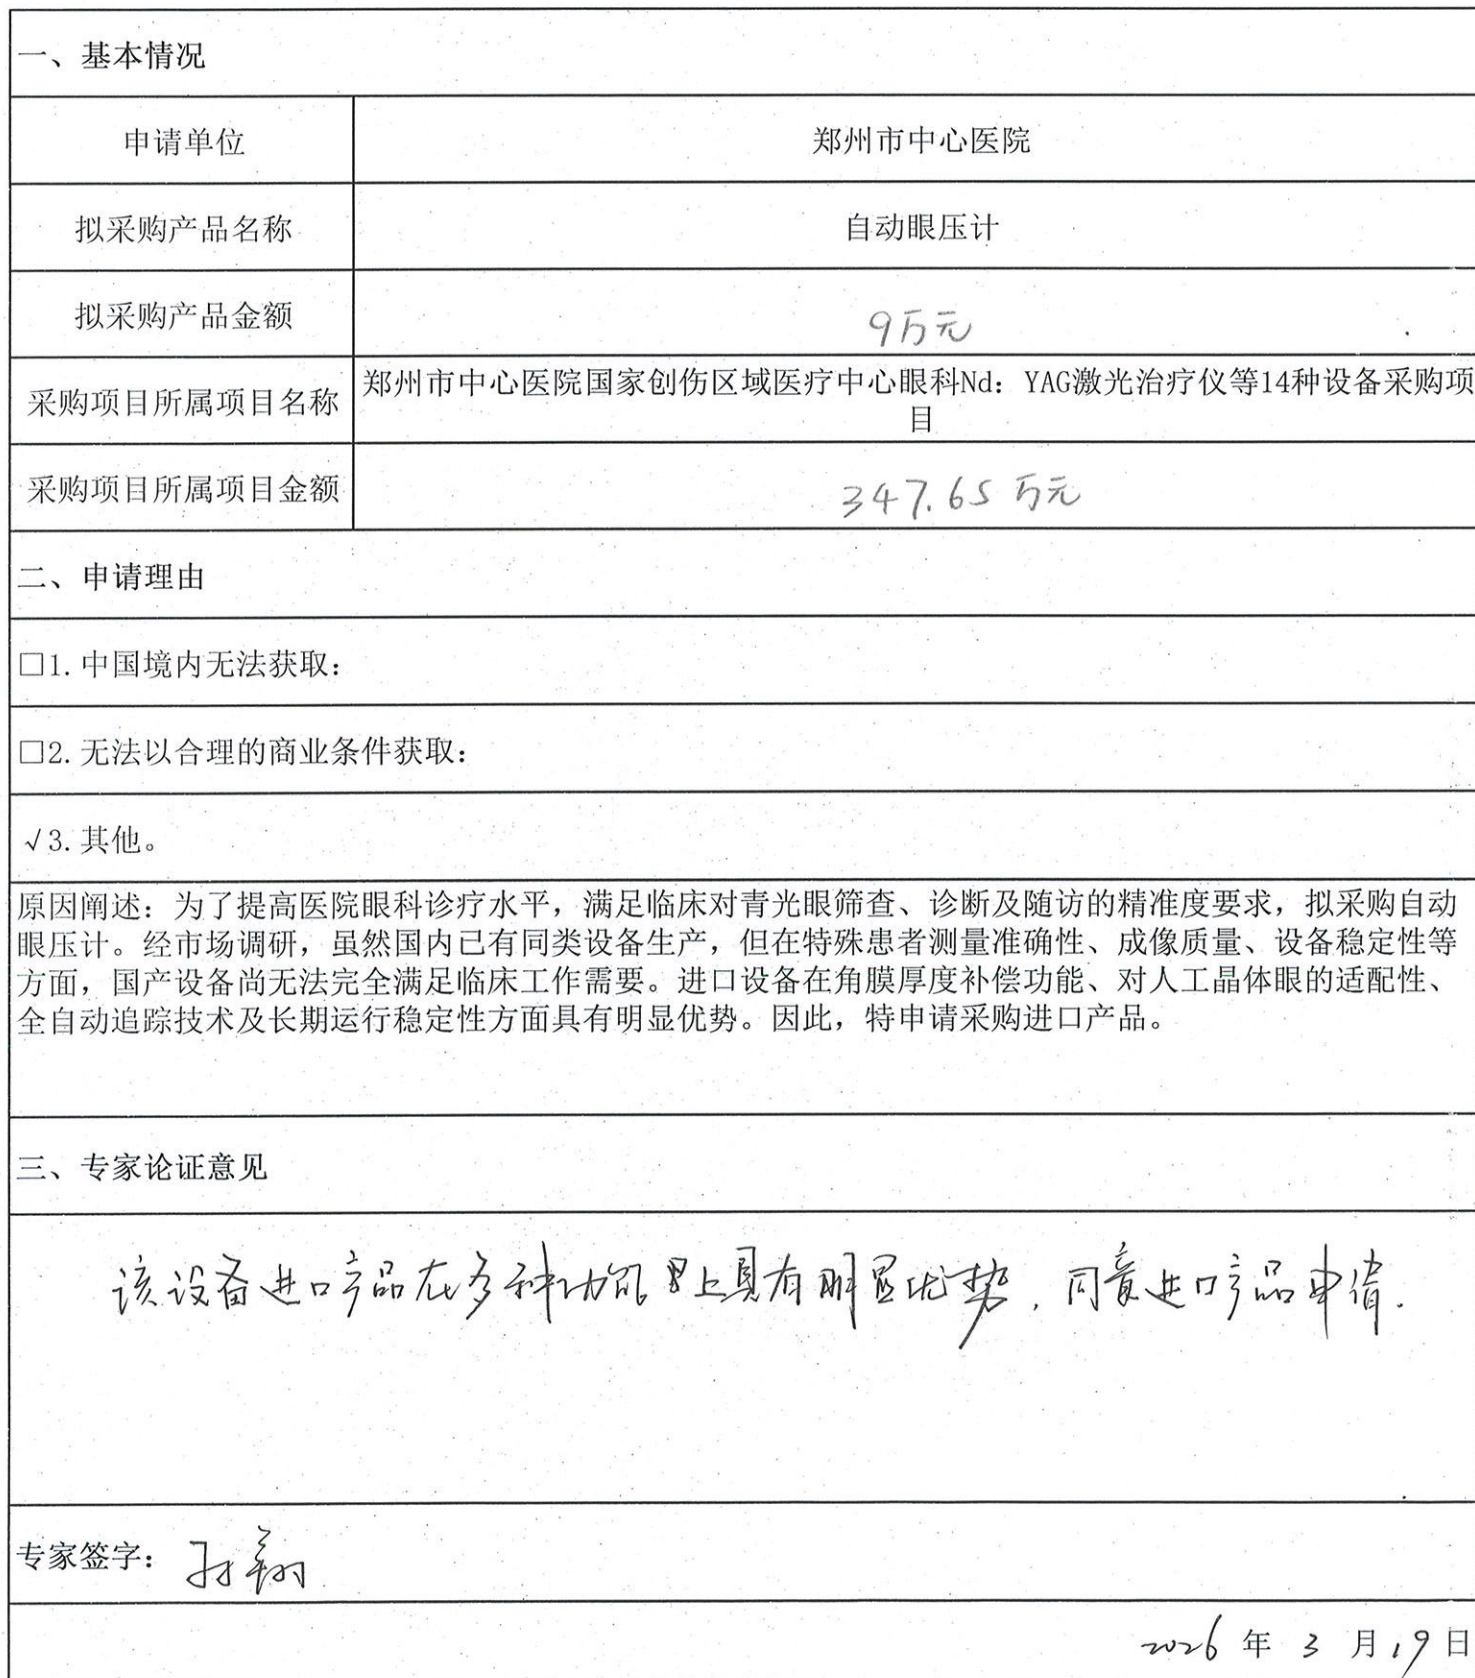 一、基本情况
申请单位 郑州市中心医院
拟采购产品名称 自动眼压计
拟采购产品金额 9万元
采购项目所属项目名称 郑州市中心医院国家创伤区域医疗中心眼科Nd：YAG激光治疗仪等14种设备采购项
目
采购项目所属项目金额 347.65 万元
二、申请理由
□1.中国境内无法获取：
□2.无法以合理的商业条件获取：
√3.其他。
原因阐述：为了提高医院眼科诊疗水平，满足临床对青光眼筛查、诊断及随访的精准度要求，拟采购自动
眼压计。经市场调研，虽然国内已有同类设备生产，但在特殊患者测量准确性、成像质量、设备稳定性等
方面，国产设备尚无法完全满足临床工作需要。进口设备在角膜厚度补偿功能、对人工晶体眼的适配性、
全自动追踪技术及长期运行稳定性方面具有明显优势。因此，特申请采购进口产品。
三、专家论证意见
该设备进口产品在多种功能上具有明显优势，同意进口产品申请.
专家签字： 孙翔
2026 年 3 月 19 日